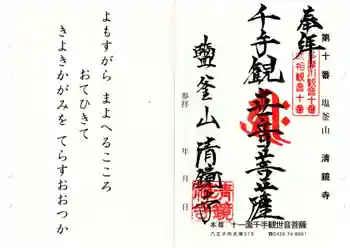 奉拝
第十番 塩釜山 清鏡寺
多摩川観音十番
武相観音十番
千手観世音菩薩
鹽釜山 清鏡寺
参拝 年 月 日
清鏡
本尊 十一面千手観世音菩薩
八王子市大塚378
よもすがら まよへるこころ
おてひきて
きよきかがみを てらすおおつか